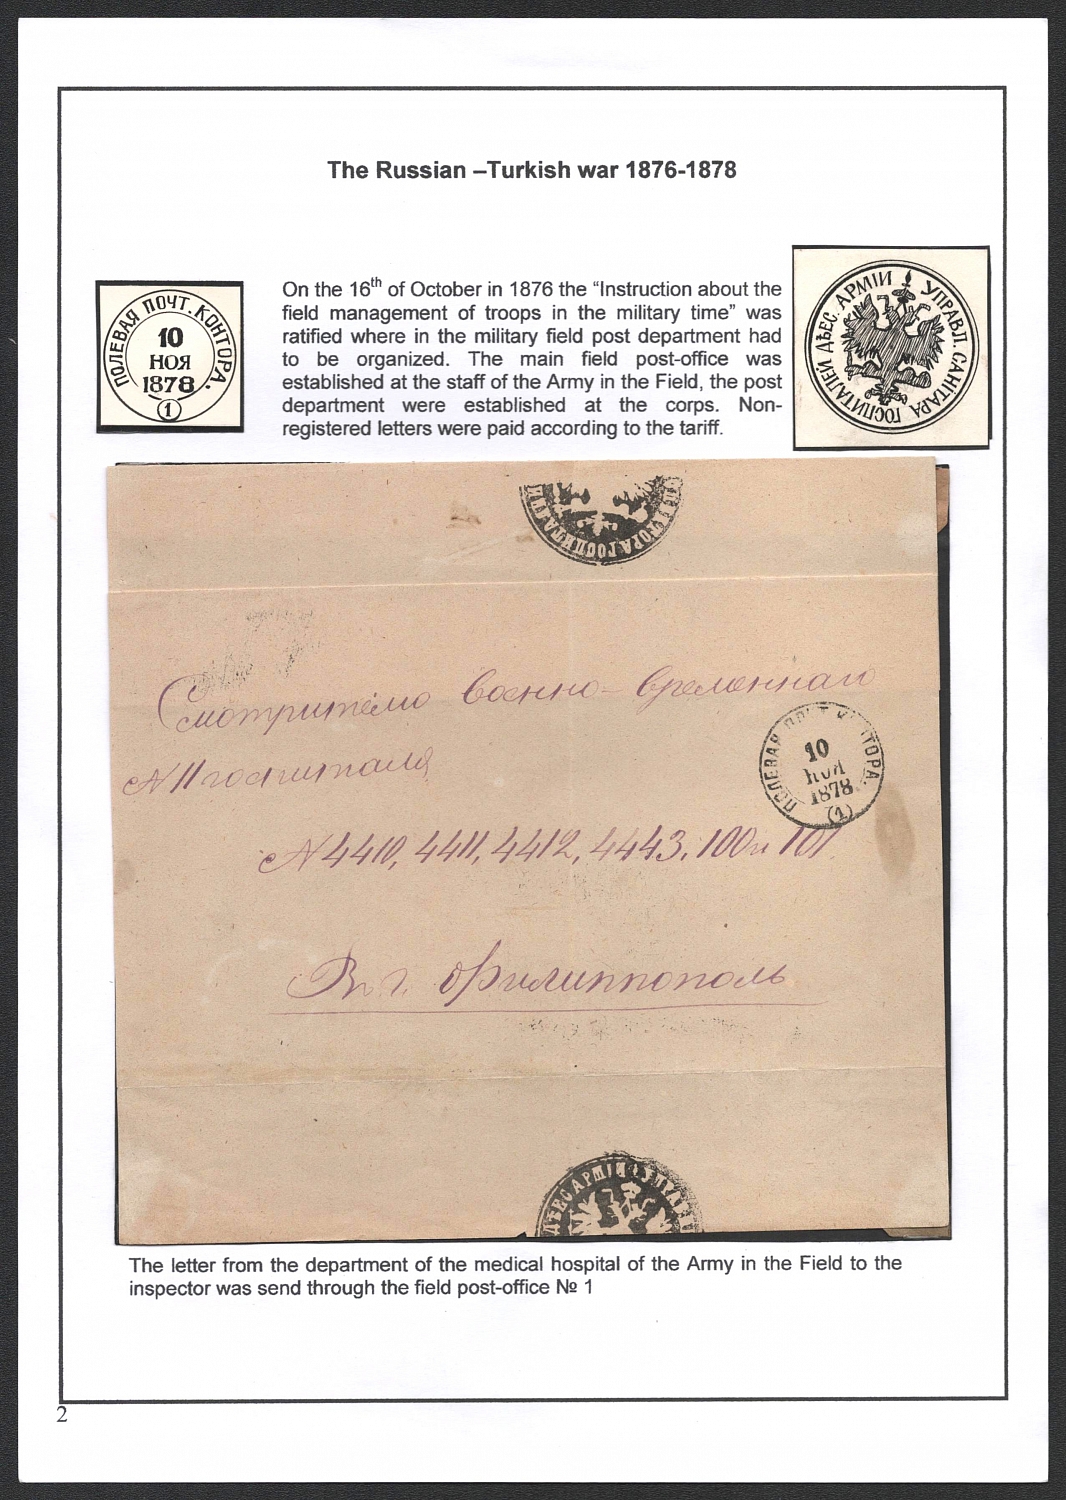 The Russian –Turkish war 1876-1878
ПОЛЕВАЯ ПОЧТ. КОНТОРА.
10
НОЯ
1878
1
On the 16th of October in 1876 the “Instruction about the
field management of troops in the military time” was
ratified where in the military field post department had
to be organized. The main field post-office was
established at the staff of the Army in the Field, the post
department were established at the corps. Non-
registered letters were paid according to the tariff.
УПРАВЛ. САНІТАРА ГОСПИТАЛЕЙ ДѢЕС. АРМІИ
ТОРА ГОСПИТА
Смотрителю военно-временнаго
№ 11 госпиталя
ПОЛЕВАЯ ПОЧТ КОНТОРА.
10
НОЯ
1878
(1)
№ 4410, 4411, 4412, 4443, 100 и 101
В г. Филиппополь
ДѢЕС АРМІИ УПРА
The letter from the department of the medical hospital of the Army in the Field to the
inspector was send through the field post-office № 1
2